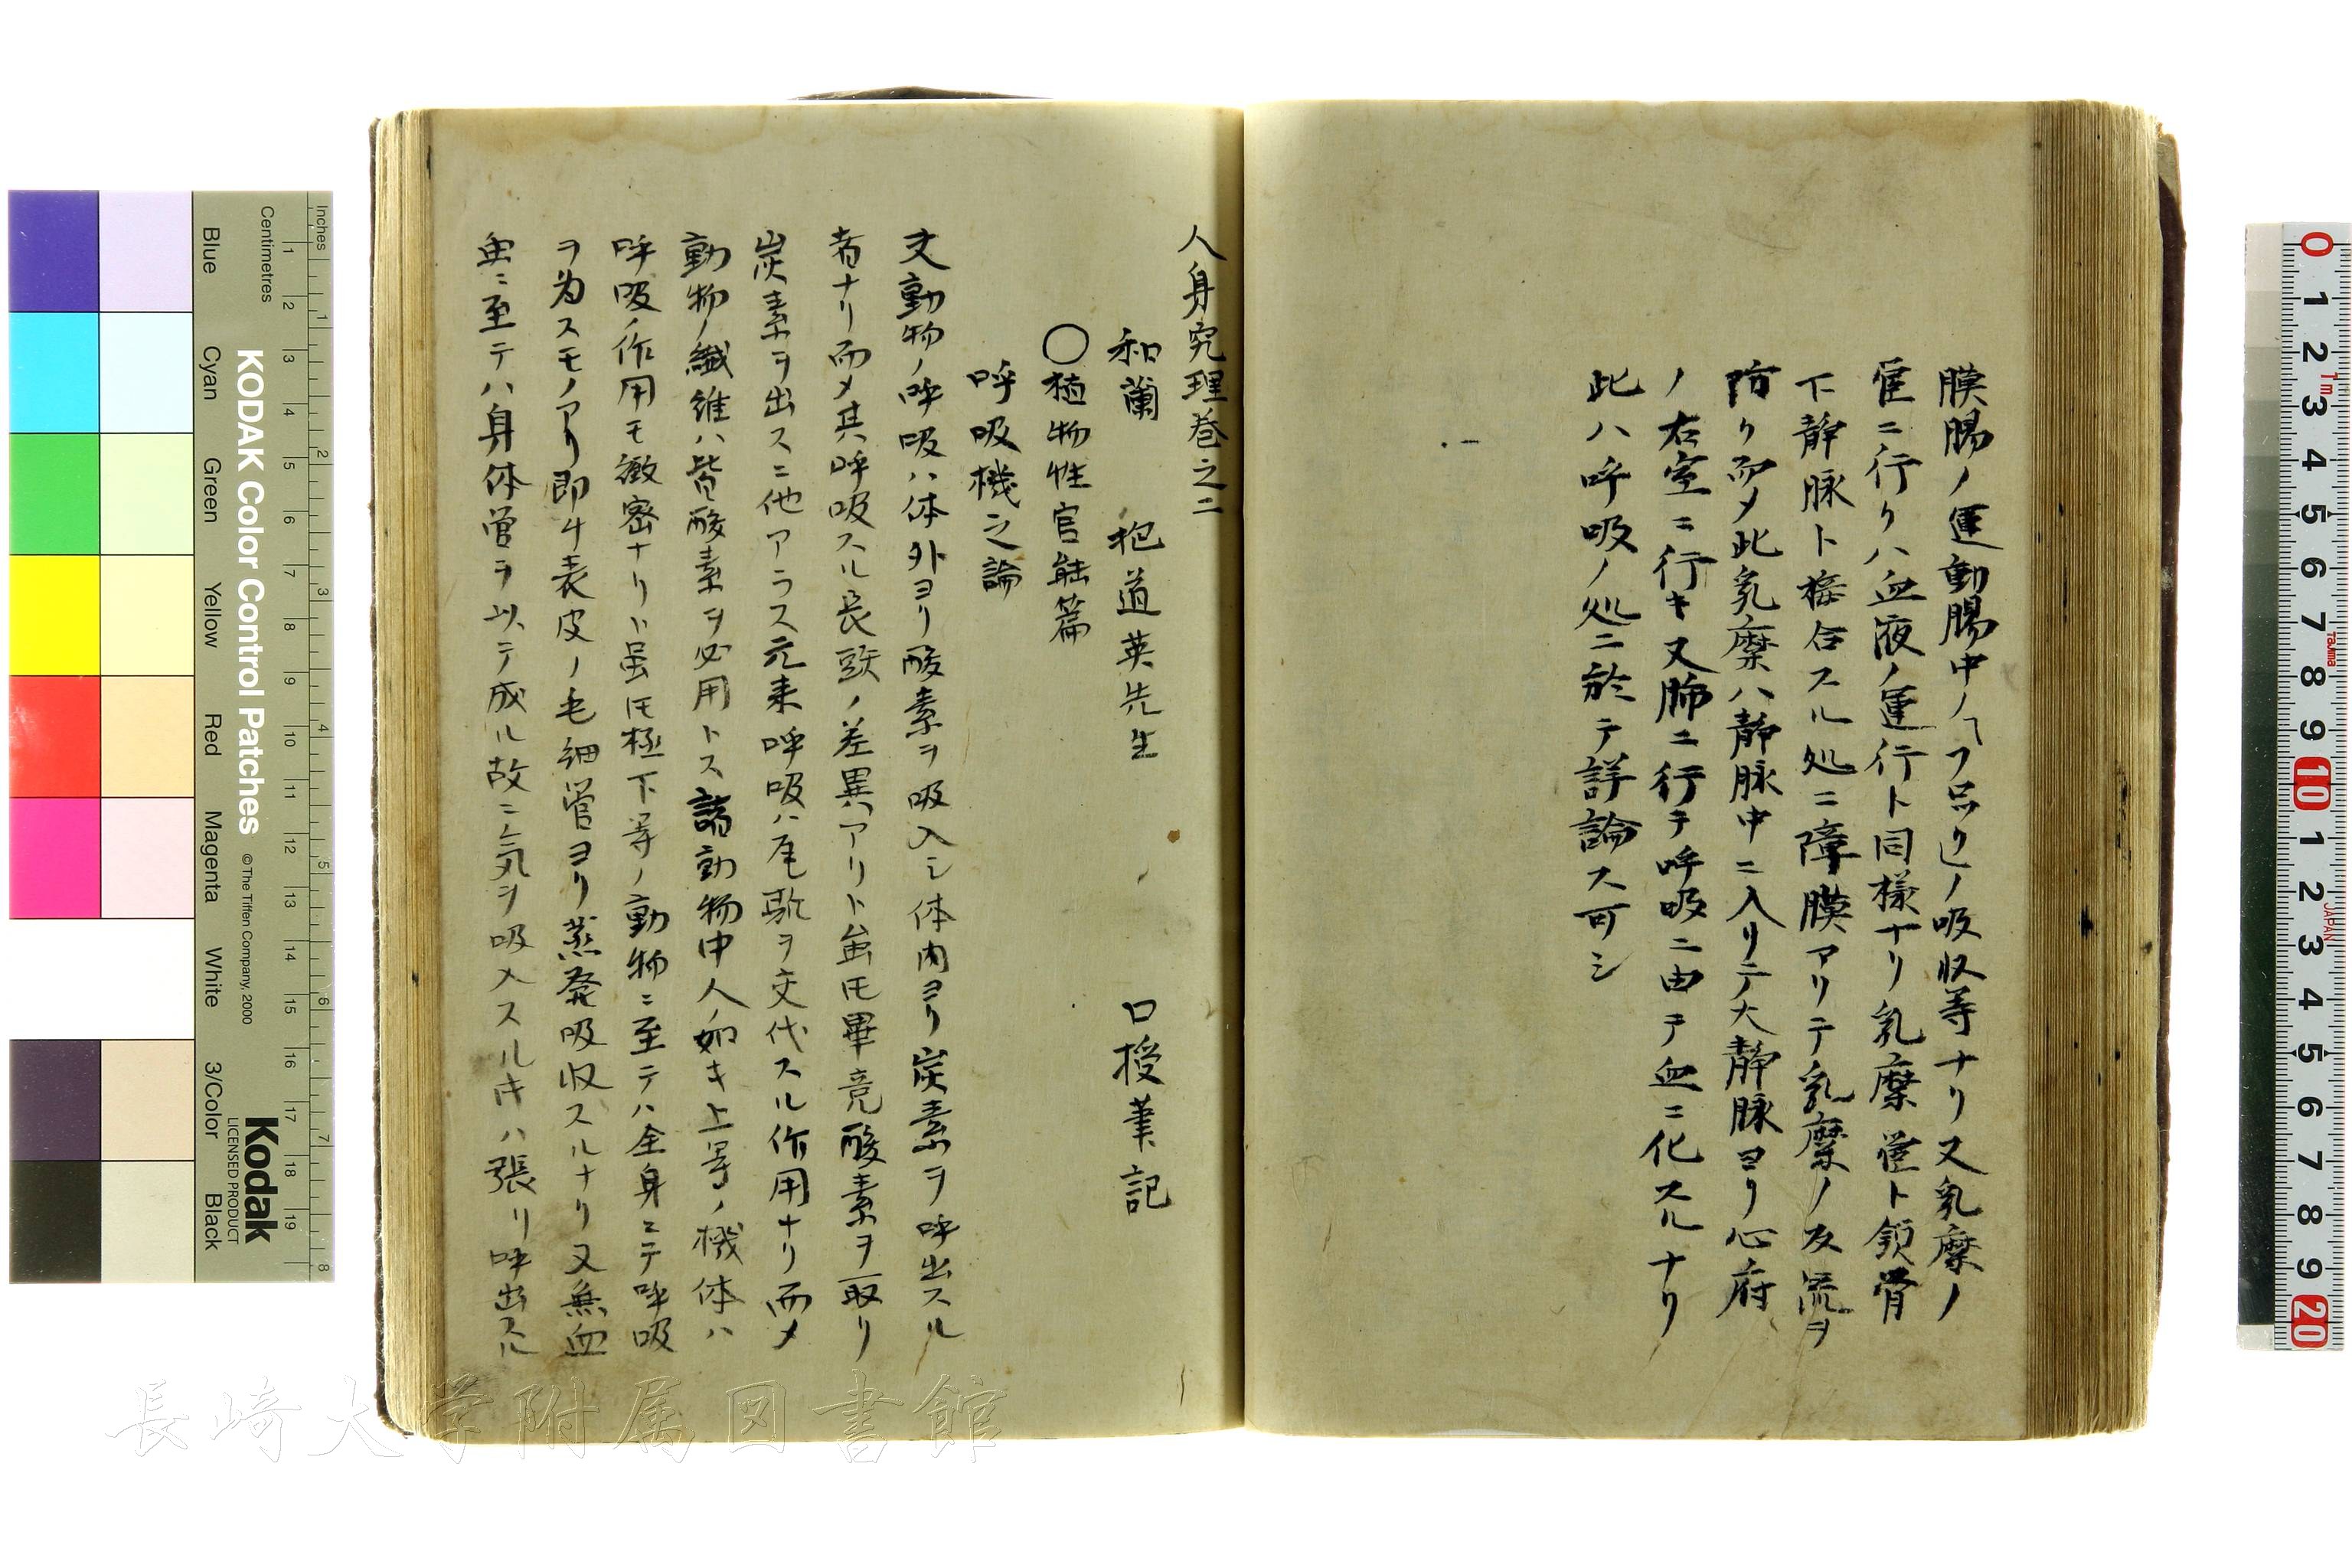 膜腸ノ運動腸中ノ ノ吸収等ナリ又乳糜ノ
管ニ行クハ血液ノ運行ト同様ナリ乳糜管ト鎖骨
下静脉ト接合スル処ニ障膜アリテ乳糜ノ反流ヲ
防ク而メ此乳糜ハ静脉中ニ入リテ大静脉ヨリ心府
ノ右室ニ行キ又肺ニ行テ呼吸ニ由テ血ニ化スルナリ
此ハ呼吸ノ処ニ於テ詳論ス可シ
人身究理巻之二
和蘭 抱道英先生 口授筆記
〇植物性官能篇
呼吸機之論
夫動物ノ呼吸ハ体外ヨリ酸素ヲ吸入シ体内ヨリ炭素ヲ呼出スル
者ナリ而メ其呼吸スル長短ノ差異アリト虽モ畢竟酸素ヲ取リ
炭素ヲ出スニ他アラス元来呼吸ハ瓦斯ヲ交代スル作用ナリ而メ
動物ノ繊維ハ皆酸素ヲ必用トス諸動物中人ノ如キ上等ノ機体ハ
呼吸ノ作用モ緻密ナリト虽モ極下等ノ動物ニ至テハ全身ニテ呼吸
ヲ為スモノアリ即チ表皮ノ毛細管ヨリ蒸発吸収スルナリ又無血
虫ニ至テハ身体管ヲ以テ成ル故ニ気ヲ吸入スル𪜈ハ張リ呼出スル
長崎大学附属図書館
Inches
Centimetres
KODAK Color Control Patches
© The Tiffen Company, 2000
Kodak
LICENSED PRODUCT
Blue Cyan Green Yellow Red Magenta White 3/Color Black
1 2 3 4 5 6 7 8
1 2 3 4 5 6 7 8 9 10 11 12 13 14 15 16 17 18 19
0 1 2 3 4 5 6 7 8 9 10 1 2 3 4 5 6 7 8 9 20
1m Tajima JAPAN